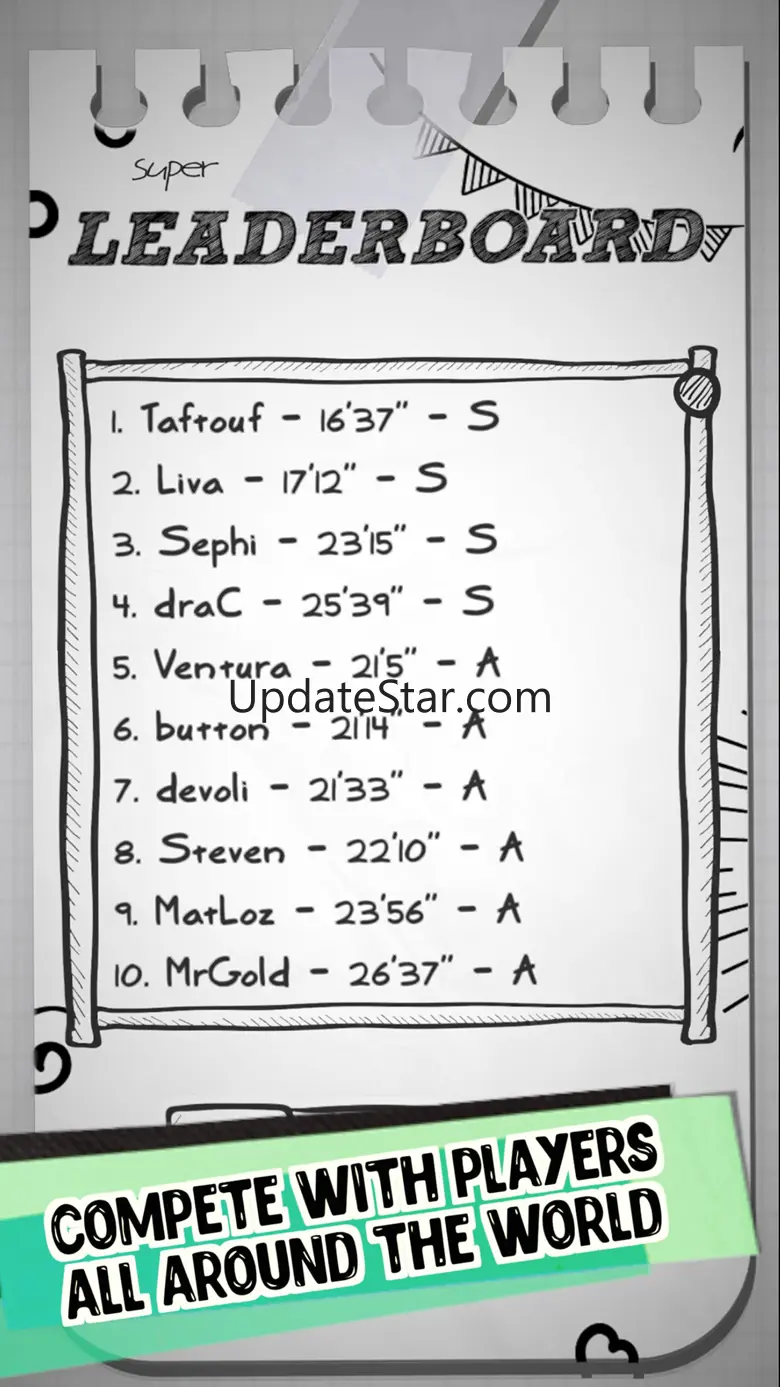 super
LEADERBOARD
1. Taftouf - 16'37" - S
2. Liva - 17'12" - S
3. Sephi - 23'15" - S
4. draC - 25'39" - S
5. Ventura - 21'5" - A
UpdateStar.com
6. button - 21'14" - A
7. devoli - 21'33" - A
8. Steven - 22'10" - A
9. MatLoz - 23'56" - A
10. MrGold - 26'37" - A
COMPETE WITH PLAYERS
ALL AROUND THE WORLD